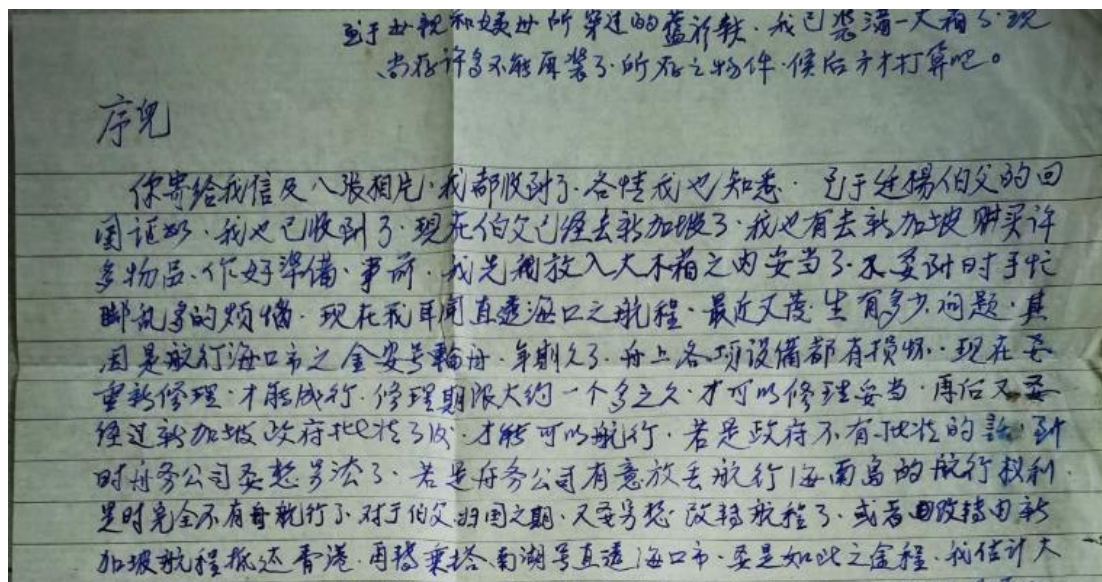 至于母親和姨母所穿过的舊衫軟，我已裝滿一大箱了．現
尚存许多不能再装了．所存之物件．候后方才打算吧。
序兒
你寄给我信及八張相片．我都收到了．各情我也知悉．至于廷揚伯父的回
国証．我也已收到了．現在伯父已经去新加坡了．我也有去新加坡购买许
多物品．作好準備．事前．我先放入大木箱之内妥当了．不要到时手忙
脚乱多的烦恼．現在我耳闻直透海口之航程．最近又發生有多少问题．其
因是航行海口市之金安号輪舟．年期久了．舟上各项设備都有损坏．現在要
重新修理．才能成行．修理期限大约一个多之久．才可以修理妥当．再后又要
经过新加坡政府批准了后．才能可以航行．若是政府不有批准的話．到
时舟务公司要想另法了．若是舟务公司有意放弃航行海南岛的航行权利．
是时完全不有舟航行了．对于伯父归国之期．又要另想改转航程了．或者改转由新
加坡航程抵达香港．再转乘搭南湖号直透海口市．要是如此之途程．我估计大